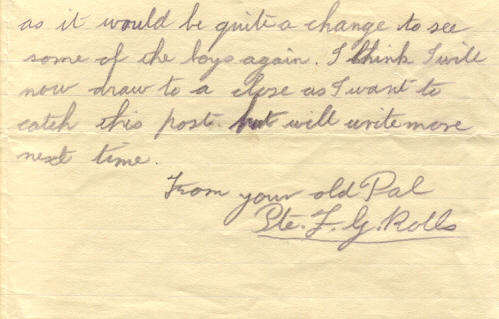 as it would be quite a change to see
some of the boys again. I think I will
now draw to a close as I want to
catch this post. but will write more
next time.
From your old Pal
Pte. F. G. Rolls